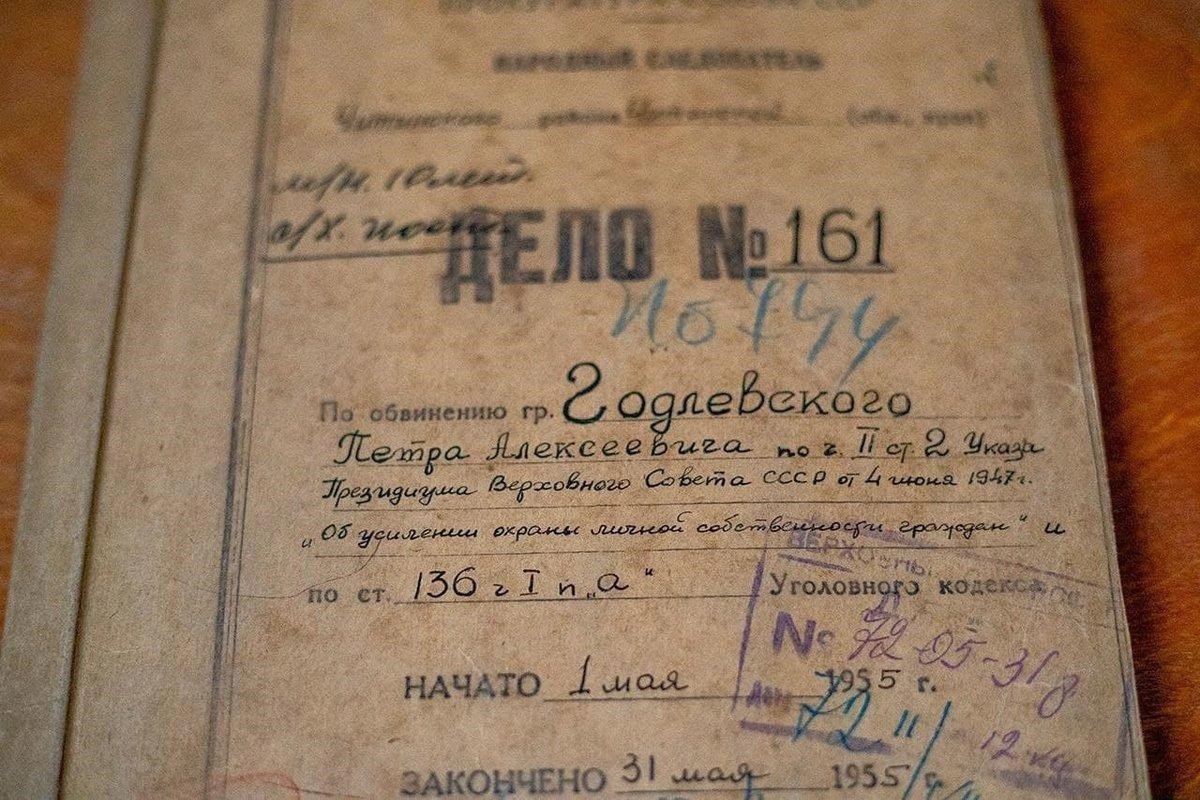 НАРОДНЫЙ СЛЕДОВАТЕЛЬ
Читинского района Читинской (обл., края)
ДЕЛО № 161
По обвинению гр. Годлевского
Петра Алексеевича по ч. II ст. 2 Указа
Президиума Верховного Совета СССР от 4 июня 1947г.
„Об усилении охраны личной собственности граждан" и
по ст. 136 ч I п „а" Уголовного кодекса
№ 72-05-318
НАЧАТО 1 мая 1955 г.
ЗАКОНЧЕНО 31 мая 1955 г.